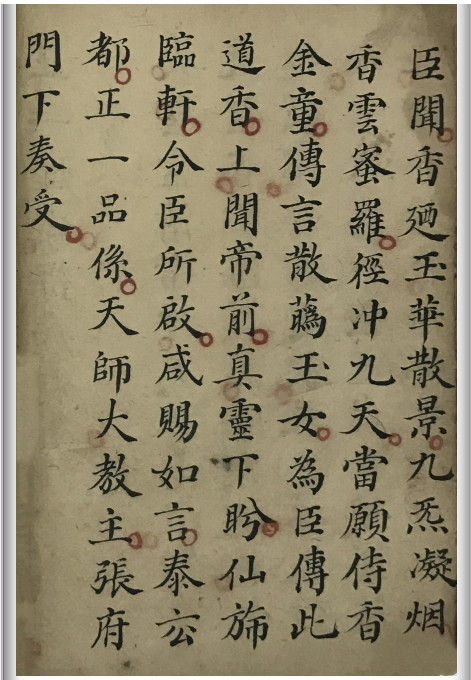 臣聞香廼玉華散景九炁凝烟
香雲蜜羅徑冲九天當願侍香
金童傳言散鵶玉女為臣傳此
道香上聞帝前真靈下盻仙斾
臨軒令臣所啟咸賜如言泰玄
都正一品係天師大教主張府
門下奏受